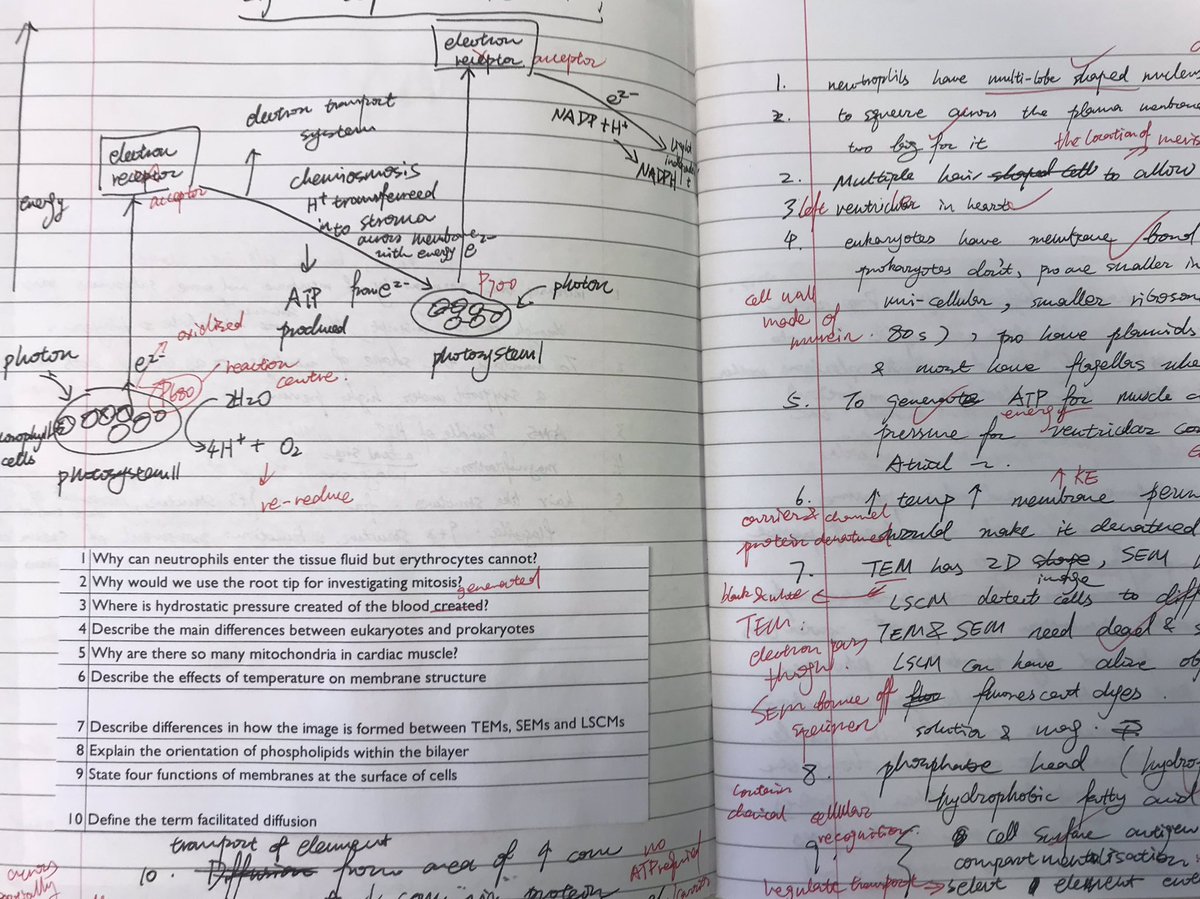 electron
receptor acceptor
e²⁻
NADP + H⁺
NADPH
electron transport
system
electron
receptor
acceptor
energy
chemiosmosis
H⁺ transfereed
into stroma
across membrane
with energy
e²⁻
e
ATP
produced
from e²⁻
P700
photon
photosystem I
photon
e²⁻
oxidised
P680
reaction
centre.
2H₂O
4H⁺ + O₂
cells
photosystem II
re-reduce
1 Why can neutrophils enter the tissue fluid but erythrocytes cannot?
2 Why would we use the root tip for investigating mitosis?
generated
3 Where is hydrostatic pressure created of the blood created?
4 Describe the main differences between eukaryotes and prokaryotes
5 Why are there so many mitochondria in cardiac muscle?
6 Describe the effects of temperature on membrane structure
7 Describe differences in how the image is formed between TEMs, SEMs and LSCMs
8 Explain the orientation of phospholipids within the bilayer
9 State four functions of membranes at the surface of cells
10 Define the term facilitated diffusion
transport of element
10. Diffusion from area of ↑ conc
no
ATP required
across
1. newtrophils have multi-lobe shaped nucleus
2. to squeeze across the plasma membrane
two big for it
the location of
2. Multiple hair shaped cells to allow
3 left ventricular in heart
4. eukaryotes have membrane bond
prokaryotes don't, pro are smaller in
cell wall
made of
murein
uni-cellular, smaller
80s), pro have plasmids
& most have
5. To generate ATP for muscle
energy
pressure for ventricular
Atrial ~.
↑ KE
6. ↑ temp ↑ membrane
carrier & channel
protein denatured
would make it denatured
7. TEM has 2D shape, SEM
image
black & white
LSCM detect cells to
TEM:
TEM & SEM need dead &
electron
LSCM can have alive
SEM bounce off
specimen
fluorescent dyes.
& mag.
8. phosphate head
hydrophobic fatty acid
contain
chemical cellular
recognition
9. cell surface antigen
compartmentalisation
regulate transport → select element